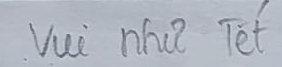 Vui như Tết